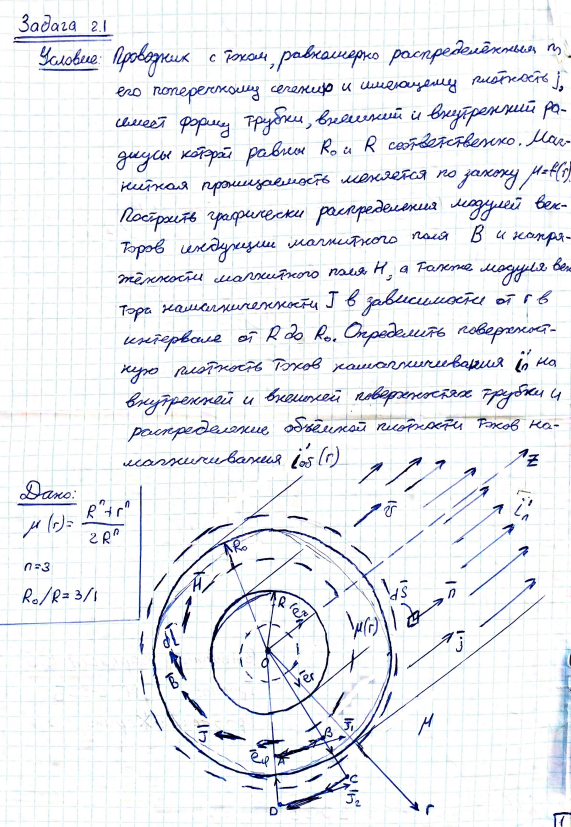 Задача 2.1
Условие: Проводник с током, равномерно распределённым п
его поперечному сечению и имеющему плотность j,
имеет форму трубки, внешний и внутренний ра-
диусы которой равны R₀ и R соответственно. Маг-
нитная проницаемость меняется по закону μ=f(r)
Построить графически распределения модулей век-
торов индукции магнитного поля B и напря-
жённости магнитного поля H, а также модуля век
тора намагниченности J в зависимости от r в
интервале от R до R₀. Определить поверхност-
ную плотность токов намагничивания i'ₙ на
внутренней и внешней поверхностях трубки и
распределение объёмной плотности токов на-
магничивания i'об(r)
Дано:
μ(r) = (Rⁿ+rⁿ)/(2Rⁿ)
n=3
R₀/R = 3/1
z
v̄
ī'ₙ
R₀
H̄
dS̄
n̄
R
μ(r)
j̄
dl̄
O
ēr
B̄
μ
J̄
ēφ
A
B
J̄₁
C
J̄₂
D
r
1